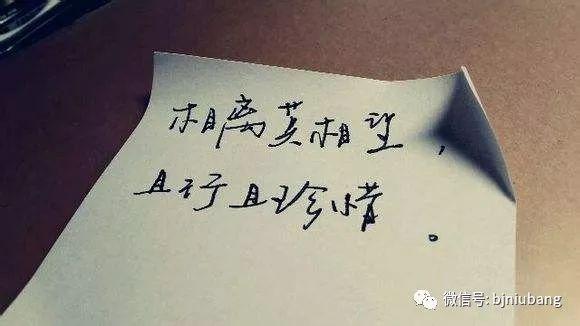 相离莫相望，
且行且珍惜。
微信号: bjniubang